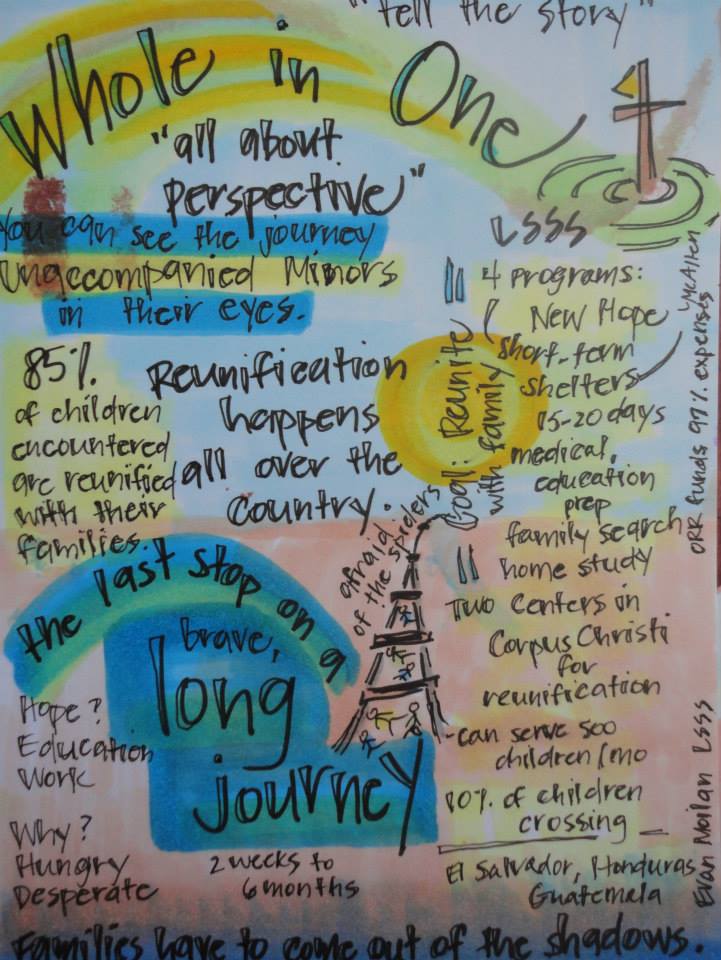 "tell the story"
Whole in One
"all about
perspective"
You can see the journey
Unaccompanied Minors
in their eyes.
85%
of children
encountered
are reunified
with their
families.
Reunification
happens
all over the
country.
Goal: Reunite
with family
LSSS
4 programs:
New Hope
short-term
shelters
McAllen
15-20 days
medical,
education
prep
family search
home study
ORR funds 97% expenses
Two centers in
Corpus Christi
for
reunification
-can serve 500
children/mo
10% of children
crossing
El Salvador, Honduras
Guatemala
Evan LSSS
afraid
of the spiders
the last stop on a
brave,
long
journey
Hope?
Education
Work
Why?
Hungry
Desperate
2 weeks to
6 months
Families have to come out of the shadows.